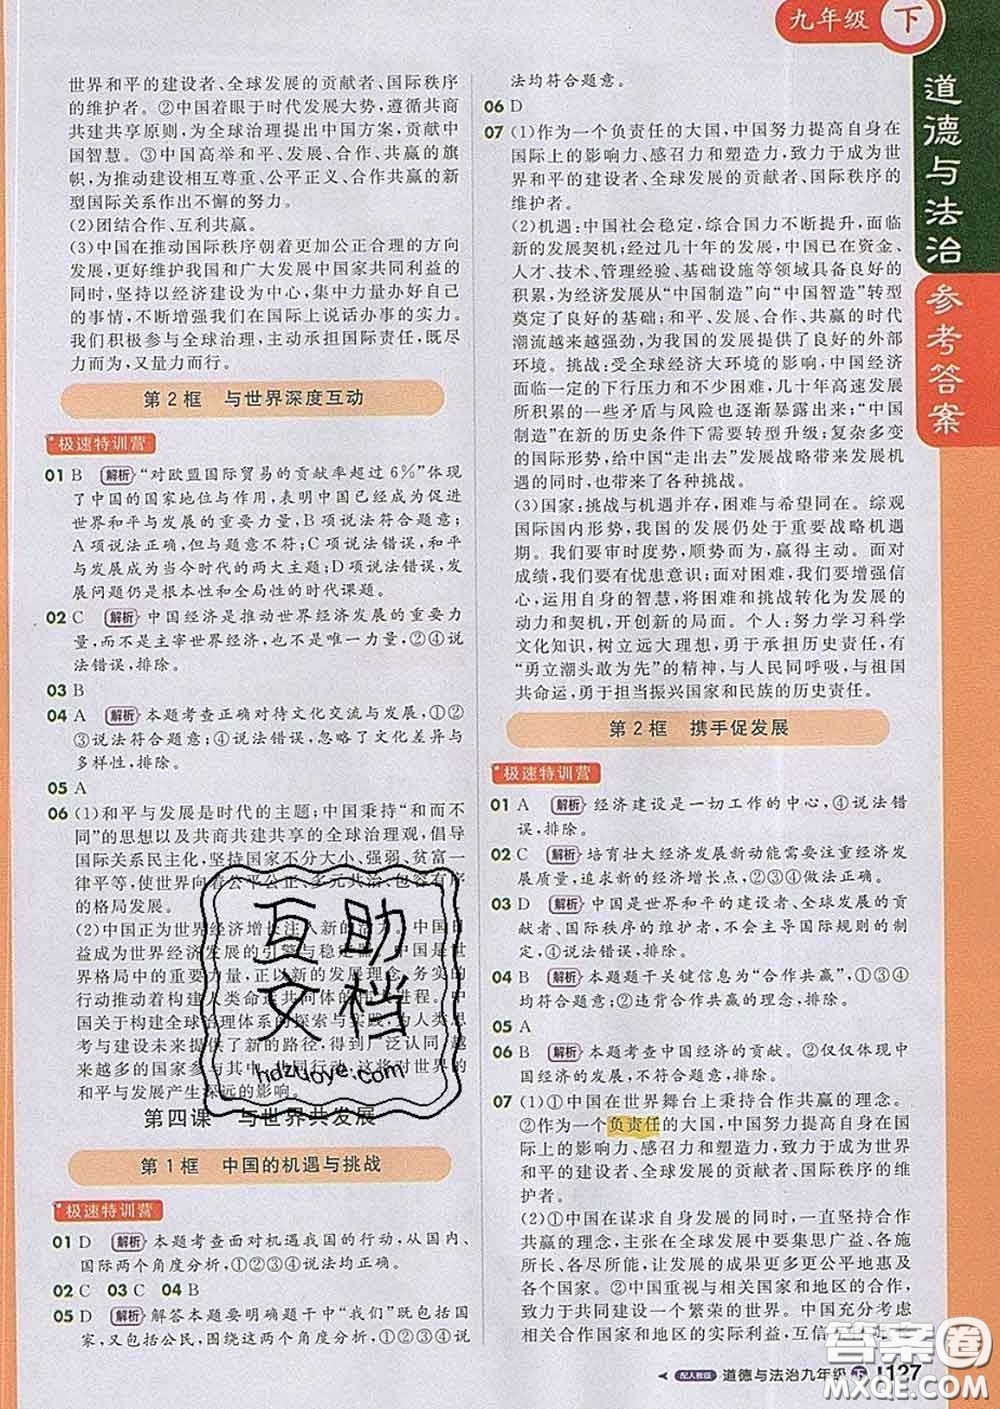 九年级 下
道德与法治
参考答案
世界和平的建设者、全球发展的贡献者、国际秩序
的维护者。②中国着眼于时代发展大势,遵循共商
共建共享原则,为全球治理提出中国方案,贡献中
国智慧。③中国高举和平、发展、合作、共赢的旗
帜,为推动建设相互尊重、公平正义、合作共赢的新
型国际关系作出不懈的努力。
(2)团结合作、互利共赢。
(3)中国在推动国际秩序朝着更加公正合理的方向
发展,更好维护我国和广大发展中国家共同利益的
同时,坚持以经济建设为中心,集中力量办好自己
的事情,不断增强我们在国际上说话办事的实力。
我们积极参与全球治理,主动承担国际责任,既尽
力而为,又量力而行。
第2框 与世界深度互动
极速特训营
01 B 解析 “对欧盟国际贸易的贡献率超过6%”体现
了中国的国家地位与作用,表明中国已经成为促进
世界和平与发展的重要力量,B项说法符合题意;
A项说法正确,但与题意不符;C项说法错误,和平
与发展成为当今时代的两大主题;D项说法错误,发
展问题仍是根本性和全局性的时代课题。
02 C 解析 中国经济是推动世界经济发展的重要力
量,而不是主宰世界经济,也不是唯一力量,②④说
法错误,排除。
03 B
04 A 解析 本题考查正确对待文化交流与发展,①②
③说法符合题意;④说法错误,忽略了文化差异与
多样性,排除。
05 A
06 (1)和平与发展是时代的主题;中国秉持“和而不
同”的思想以及共商共建共享的全球治理观,倡导
国际关系民主化,坚持国家不分大小、强弱、贫富一
律平等,使世界向着公平公正、多元共治、包容有序
的格局发展。
(2)中国正为世界经济增长注入新的活力。中国日
益成为世界经济发展的引擎与稳定器。中国是世
界格局中的重要力量,正以新的发展理念,务实的
行动推动着构建人类命运共同体的伟大进程。中
国关于构建全球治理体系的探索与实践,为人类思
考与建设未来提供了新的路径,得到广泛认同,越
来越多的国家参与其中,大国行动,这将对世界的
和平与发展产生深远的影响。
第四课 与世界共发展
第1框 中国的机遇与挑战
极速特训营
01 D 解析 本题考查面对机遇我国的行动,从国内、
国际两个角度分析,①②③④说法均正确。
02 C 03 C 04 B
05 D 解析 解答本题要明确题干中“我们”既包括国
家,又包括公民,围绕这两个角度分析,①②③④说
法均符合题意。
06 D
07 (1)作为一个负责任的大国,中国努力提高自身在
国际上的影响力、感召力和塑造力,致力于成为世
界和平的建设者、全球发展的贡献者、国际秩序的
维护者。
(2)机遇:中国社会稳定,综合国力不断提升,面临
新的发展契机;经过几十年的发展,中国已在资金、
人才、技术、管理经验、基础设施等领域具备良好的
积累,为经济发展从“中国制造”向“中国智造”转型
奠定了良好的基础;和平、发展、合作、共赢的时代
潮流越来越强劲,为我国的发展提供了良好的外部
环境。挑战:受全球经济大环境的影响,中国经济
面临一定的下行压力和不利因素,几十年高速发展
所积累的一些矛盾与风险也逐渐暴露出来,“中国
制造”在新的历史条件下需要转型升级;复杂多变
的国际形势,给中国“走出去”发展带来发展机遇
的同时,也带来了各种挑战。
(3)国家:挑战与机遇并存,困难与希望同在。综观
国际国内形势,我国的发展仍处于重要战略机遇
期。我们要审时度势,顺势而为,赢得主动。面对
成绩,我们要有忧患意识;面对困难,我们要增强信
心,运用自己的智慧,将困难和挑战转化为发展的
动力和契机,开创新的局面。个人:努力学习科学
文化知识,树立远大理想,勇于承担历史责任,有
“勇立潮头敢为先”的精神,与人民同呼吸,与祖国
共命运,勇于担当振兴国家和民族的历史责任。
第2框 携手促发展
极速特训营
01 A 解析 经济建设是一切工作的中心,④说法错
误,排除。
02 C 解析 培育壮大经济发展新动能需要注重经济发
展质量,追求新的经济增长点,①②③④做法正确。
03 D 解析 中国是世界和平的建设者、全球发展的贡
献者、国际秩序的维护者,不会主导国际规则的制
定,④说法错误,排除。
04 B 解析 本题题干关键信息为“合作共赢”,①③④
均符合题意;②违背合作共赢的理念,排除。
05 A
06 B 解析 本题考查中国经济的贡献。②仅仅体现中
国经济的发展,不符合题意,排除。
07 (1)①中国在世界舞台上秉持合作共赢的理念。
②作为一个负责任的大国,中国努力提高自身在国
际上的影响力、感召力和塑造力,致力于成为世界
和平的建设者、全球发展的贡献者、国际秩序的维
护者。
(2)①中国在谋求自身发展的同时,一直坚持合作
共赢的理念,主张在全球发展中要集思广益、各施
所长、各尽所能,让发展的成果更多更公平地惠及
各个国家。②中国重视与相关国家和地区的合作,
致力于共同建设一个繁荣的世界。中国充分考虑
相关合作国家和地区的实际利益,互信
互助文档
hdzuoye.com
答案圈
MXQE.COM
配人教版 道德与法治九年级 下 127